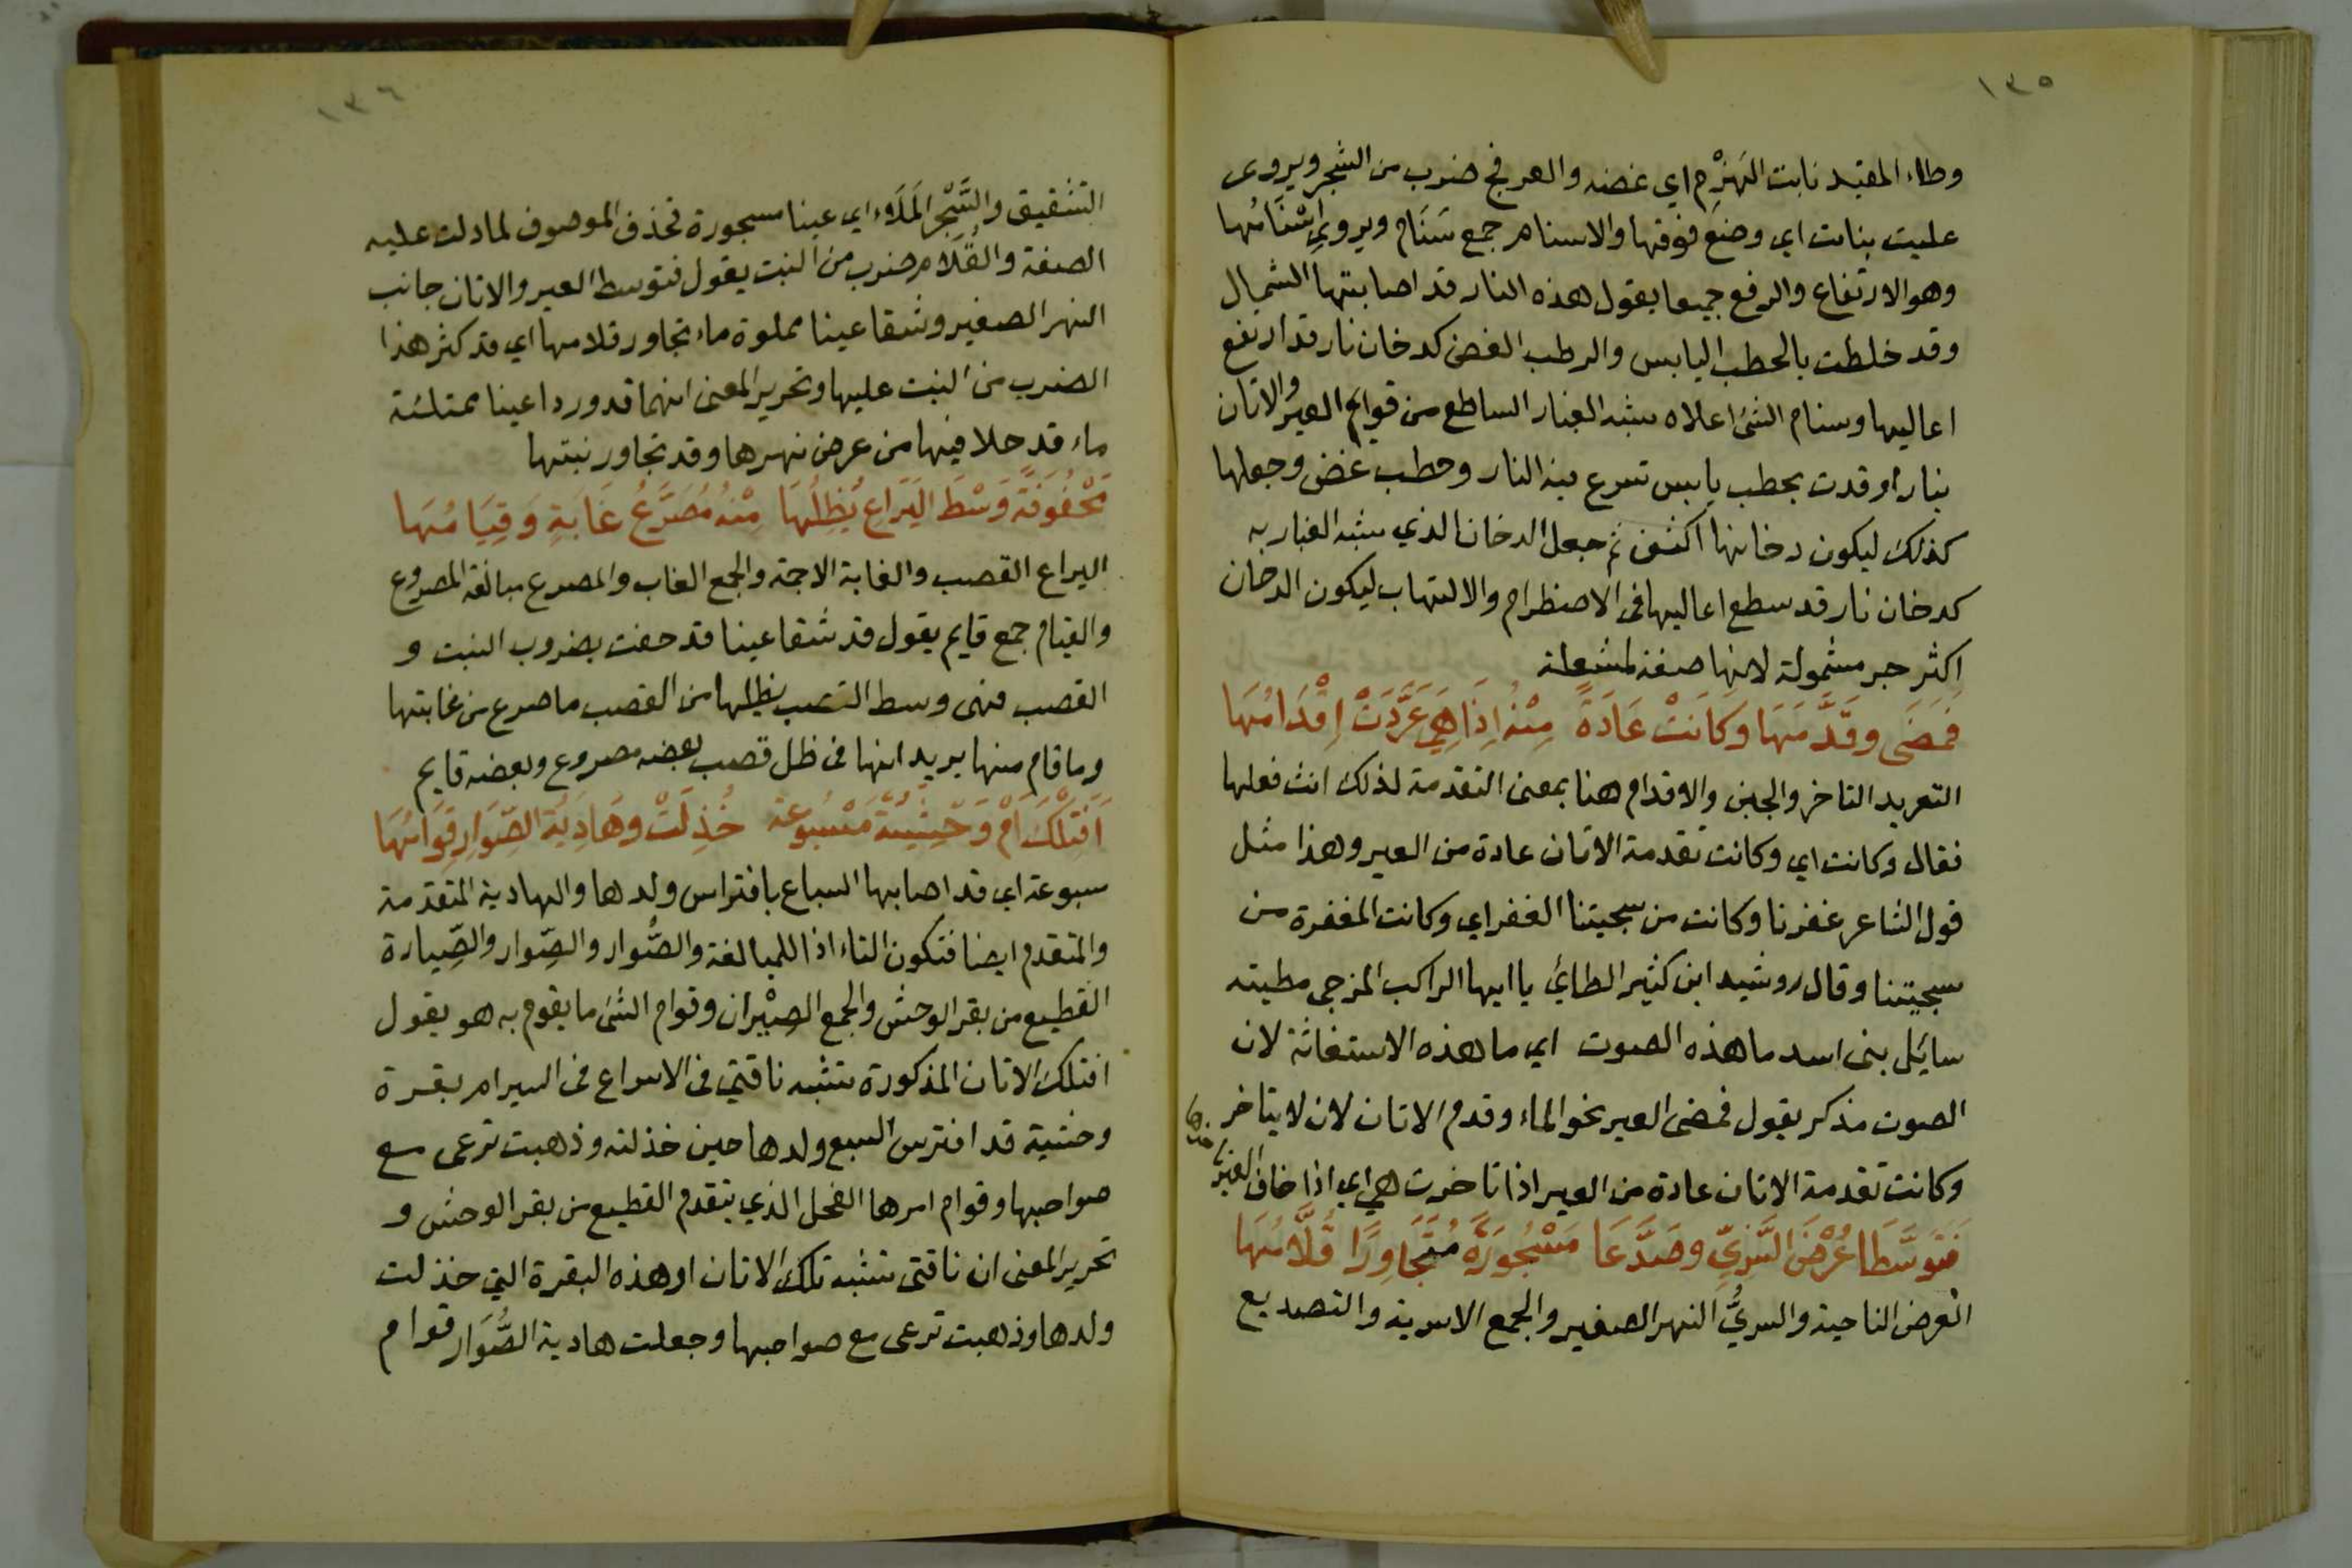 ١٣٥
وطاء المقيد نابت الهَرْم اي غضه والعرفج ضرب من الشجر ويروى
عليت بنابت اي وضع فوقها والاسنام جمع سَنَام ويروي اِسْنَامُها
وهو الارتفاع والرفع جميعا يقول هذه النار قد اصابتها الشمال
وقد خلطت بالحطب اليابس والرطب الغض كدخان نار قد ارتفع
اعاليها وسنام الشئ اعلاه شبه الغبار الساطع من قوايم العير والاتان
بنار اوقدت بحطب يابس تسرع فيه النار وحطب غض وجعلها
كذلك ليكون دخانها اكثف ثم جعل الدخان الذي شبه الغبار به
كدخان نار قد سطع اعاليها فى الاضطرام والالتهاب ليكون الدخان
اكثر جر مشمولة لانها صفة لمشعلة
فَمَضَى وقَدَّمَهَا وكَانَتْ عَادَةً مِنْهُ اِذَا هِيَ عَرَّدَتْ اِقْدَامُهَا
التعريد التاخر والجبن والاقدام هنا بمعنى التقدمة لذلك انث فعلها
فقال وكانت اي وكانت تقدمة الاتان عادة من العير وهذا مثل
قول الشاعر غفرنا وكانت من سجيتنا الغفر اي وكانت المغفرة من
سجيتنا وقال رويشد ابن كثير الطائي يا ايها الراكب المزجى مطيته
سائل بنى اسد ما هذه الصوت اي ما هذه الاستغاثة لان
الصوت مذكر يقول فمضى العير نحو الماء وقدم الاتان لان لا يتاخر
وكانت تقدمة الاتان عادة من العير اذا تاخرت هي اي اذا خاف العير
فَتَوَسَّطَا عُرْضَ السَّرِيِّ وصَدَّعَا مَسْجُورَةً مُتَجَاوِرًا قُلَّامُهَا
العرض الناحية والسريُّ النهر الصغير والجمع الاسرية والتصديع
١٣٦
التشقيق والسَّجْر المَلَاء اي عينا مسجورة فحذف الموصوف لما دلت عليه
الصفة والقُلَّام ضرب من النبت يقول فتوسط العير والاتان جانب
النهر الصغير وشقا عينا مملوة ماء تجاور قلامها اي قد كثر هذا
الضرب من النبت عليها وتحرير المعنى انهما قد وردا عينا ممتلئة
ماء قد حلا فيها من عرض نهرها وقد تجاور نبتها
مَحْفُوفَةً وَسْطَ اليَرَاعِ يُظِلُّهَا مِنْهُ مُصَرَّعُ غَابَةٍ وَقِيَامُهَا
اليراع القصب والغابة الاجمة والجمع الغاب والمصرع مبالغة المصروع
والقيام جمع قايم يقول قد شقا عينا قد حفت بضروب النبت و
القصب فهى وسط القصب يظلها من القصب ما صرع من غابتها
وما قام منها يريد انها فى ظل قصب بعضه مصروع وبعضه قايم
اَفَتِلْكَ اَمْ وَحْشِيَّةٌ مَسْبُوعَة خُذِلَتْ وهَادِيَةُ الصِّوَارِ قِوَامُهَا
سبوعة اي قد اصابها السباع بافتراس ولدها والهادية المتقدمة
والمتقدم ايضا فتكون التاء اذا للمبالغة والصُّوار والصِّوار والصِّيارة
القطيع من بقر الوحش والجمع الصِيْران وقوام الشئ ما يقوم به هو يقول
افتلك الاتان المذكورة تشبه ناقتي فى الاسراع فى السير ام بقرة
وحشية قد افترس السبع ولدها حين خذلته وذهبت ترعى مع
صواحبها وقوام امرها الفحل الذي يتقدم القطيع من بقر الوحش و
تحرير المعنى ان ناقتى تشبه تلك الاتان او هذه البقرة التي خذلت
ولدها وذهبت ترعى مع صواحبها وجعلت هادية الصُّوَار قوام